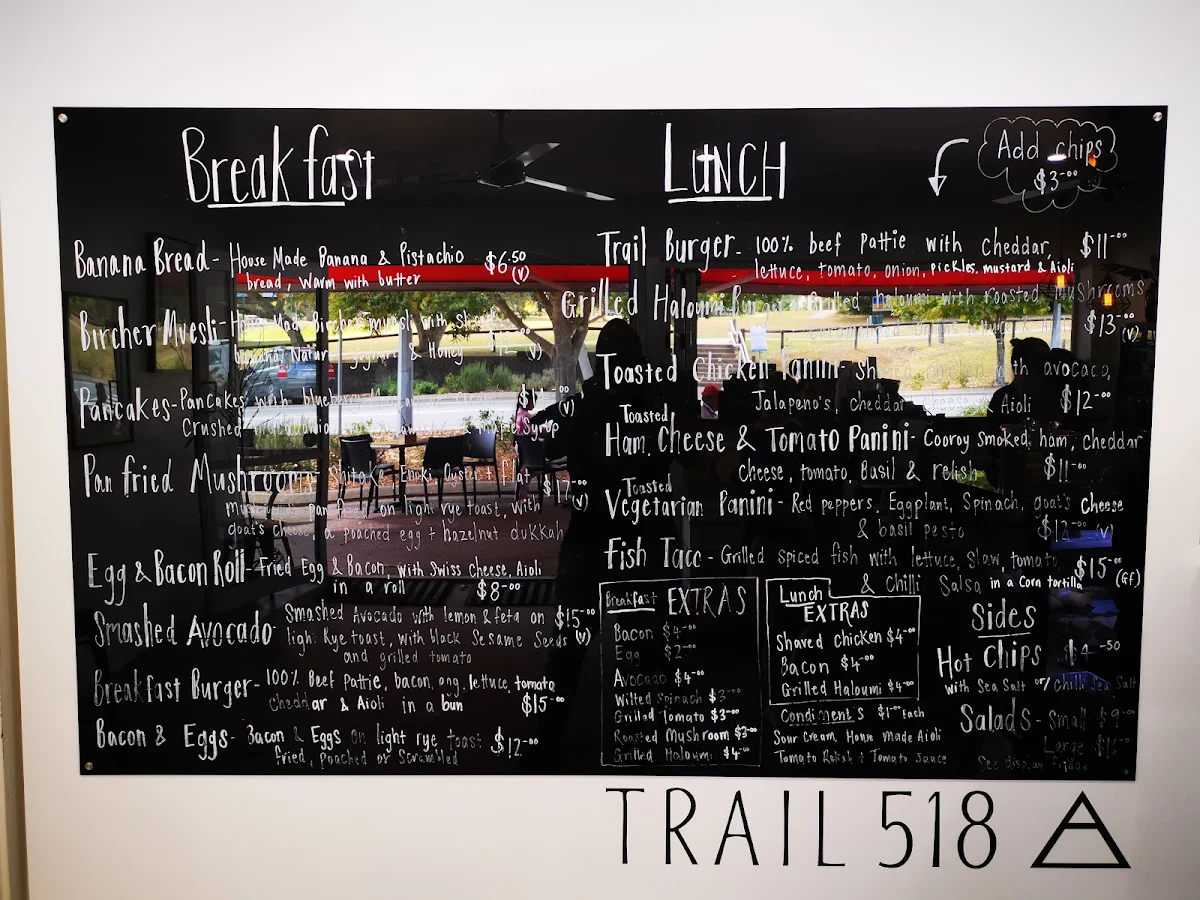 Breakfast
Banana Bread- House Made Banana & Pistachio $6.50
bread, warm with butter (v)
Bircher Muesli- House Made Bircher muesli with
banana, Natural & Honey (v)
Pancakes- Pancakes with blueberry (v)
Crushed Syrup
Pan fried Mushrooms- Shitake Enoki Oyster + flat
mushrooms pan fried on light rye toast, with (v)
goat's cheese, a poached egg + hazelnut dukkah
Egg & Bacon Roll- Fried Egg & Bacon, with Swiss cheese, Aioli
in a roll $8-00
Smashed Avocado- Smashed Avocado with lemon & feta on $15-00
light Rye toast, with black Sesame Seeds (v)
and grilled tomato
Breakfast Burger- 100% Beef Pattie, bacon, egg, lettuce, tomato
cheddar & Aioli in a bun $15-00
Bacon & Eggs- Bacon & Eggs on light rye toast $12-00
fried, poached or Scrambled
LUNCH
Add chips
$3-00
Trail Burger- 100% beef pattie with cheddar, $11-00
lettuce, tomato, onion, pickles, mustard & Aioli
Grilled Haloumi Burger- Grilled haloumi with roasted mushrooms
$13-00 (v)
Toasted Chicken Panini- chicken with avocado,
Jalapeno's, cheddar Cheese Aioli $12-00
Toasted
Ham, Cheese & Tomato Panini- Cooroy smoked ham, cheddar
Cheese, tomato, Basil & relish $11-00
Toasted
Vegetarian Panini- Red peppers, Eggplant, Spinach, goat's cheese
& basil pesto $12-00 (v)
Fish Taco- Grilled spiced fish with lettuce, Slaw, tomato $15-00
& Chilli Salsa in a Corn tortilla (Gf)
Breakfast EXTRAS
Bacon $4-00
Egg $2-00
Avocado $4-00
Wilted Spinach $3-00
Grilled Tomato $3-00
Roasted Mushroom $3-00
Grilled Haloumi $4-00
Lunch
EXTRAS
Shaved Chicken $4-00
Bacon $4-00
Grilled Haloumi $4-00
Condiments $1-00 Each
Sour Cream House made Aioli
Tomato Relish + Tomato Sauce
Sides
Hot Chips $4-50
with Sea Salt or Chilli Sea Salt
Salads- Small $9-00
Large
See display fridge
TRAIL 518